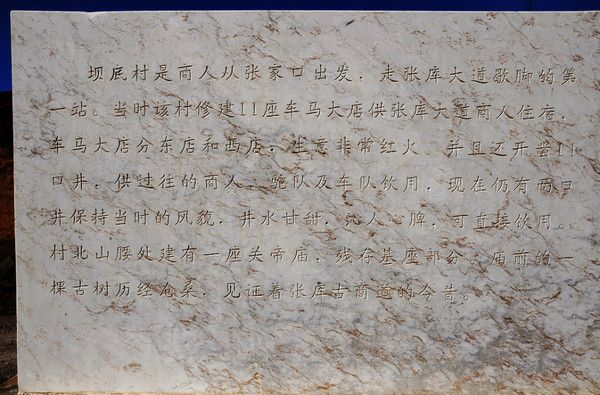 坝底村是商人从张家口出发，走张库大道歇脚的第
一站。当时该村修建11座车马大店供张库大道商人住宿，
车马大店分东店和西店，生意非常红火。并且还开凿11
口井，供过往的商人，驼队及车队饮用，现在仍有两口
井保持当时的风貌，井水甘甜，沁人心脾，可直接饮用。
村北山腰处建有一座关帝庙，残存基座部分。庙前的一
棵古树历经沧桑，见证着张库古商道的今昔。